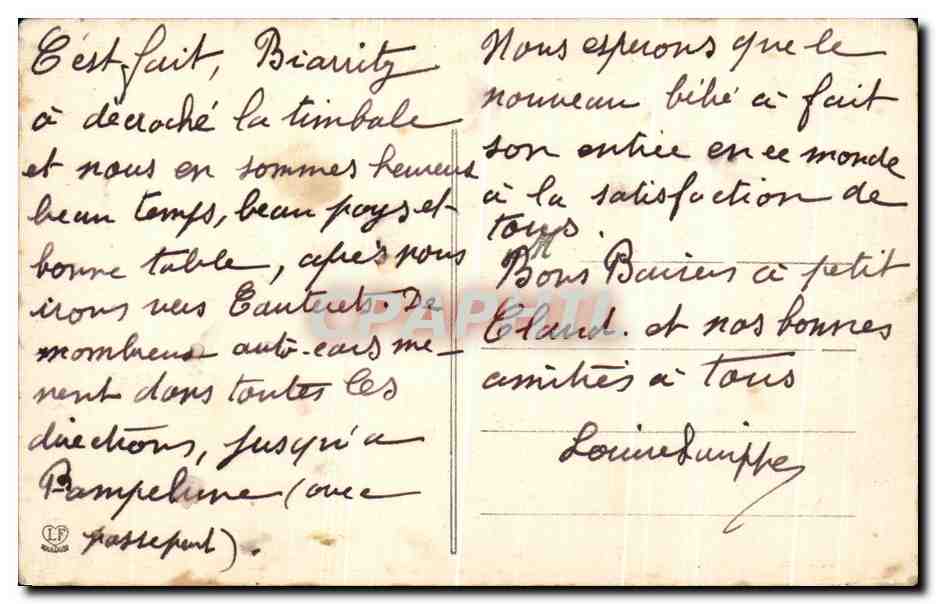 C'est fait, Biarritz
à décroché la timbale
et nous en sommes heureux
beau temps, beau pays et
bonne table, après nous
irons vers Cauterets. De
nombreux auto-cars me-
nent dans toutes les
directions, jusqu'à
Pampelune (avec
passeport).
LF
Nous esperons que le
nouveau bébé à fait
son entrée en ce monde
à la satisfaction de
tous.
Bons Baisers à petit
Claud. et nos bonnes
amitiés à tous
Louise
CPAPHIL